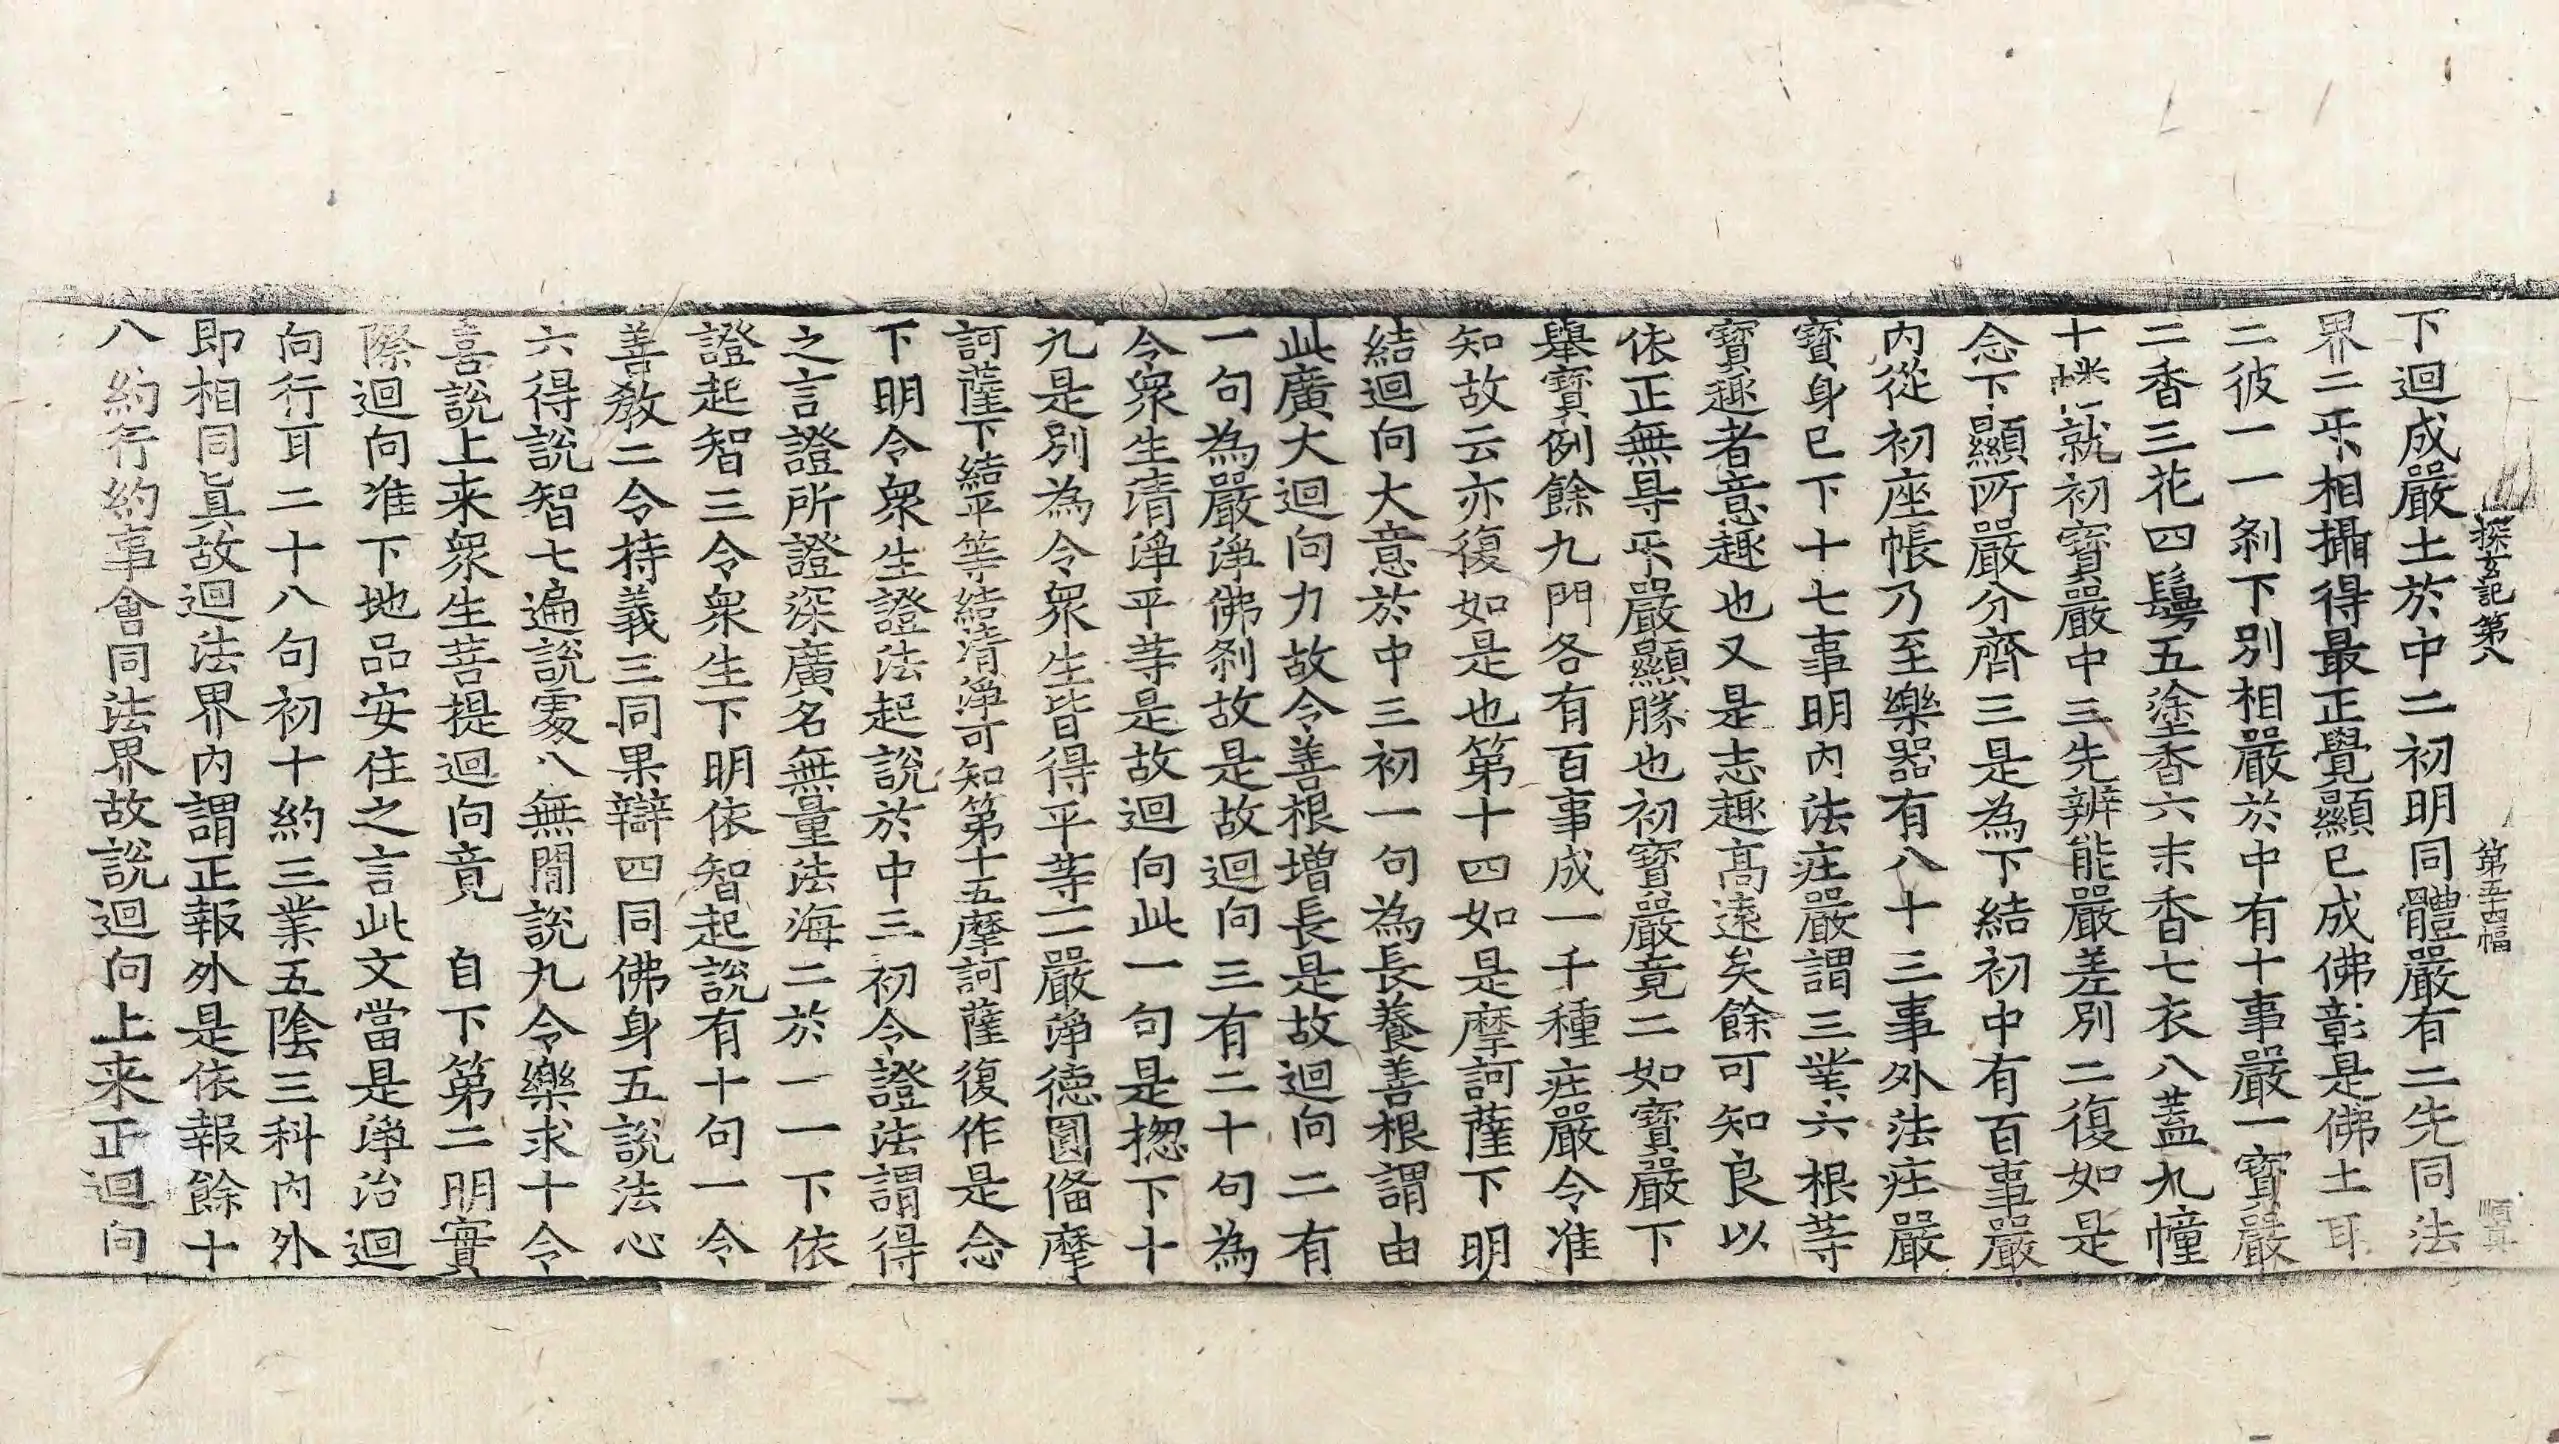 探玄記第八 第五十四幅 順真
下迴成嚴土於中二初明同體嚴有二先同法
界二𭃡相攝得最正覺顯已成佛彰是佛土耳
二彼一一刹下別相嚴於中有十事嚴一寶嚴
二香三花四鬘五塗香六末香七衣八蓋九幢
十幡就初寶嚴中三先辨能嚴差別二復如是
念下顯所嚴分齊三是為下結初中有百事嚴
內從初座帳乃至樂器有八十三事外法莊嚴
寶身已下十七事明內法莊嚴謂三業六根等
寶趣者意趣也又是志趣高遠矣餘可知良以
依正無㝵𭃡嚴顯勝也初寶嚴竟二如寶嚴下
舉寶例餘九門各有百事成一千種莊嚴令准
知故云亦復如是也第十四如是摩訶薩下明
結迴向大意於中三初一句為長養善根謂由
此廣大迴向力故令善根增長是故迴向二有
一句為嚴淨佛刹故是故迴向三有二十句為
令衆生清淨平等是故迴向此一句是揔下十
九是別為令衆生皆得平等二嚴淨德圓俻摩
訶薩下結平等結清淨可知第十五摩訶薩復作是念
下明令衆生證法起說於中三初令證法謂得
之言證所證深廣名無量法海二於一一下依
證起智三令衆生下明依智起說有十句一令
善教二令持義三同果辯四同佛身五說法心
六得說智七遍說處八無間說九令樂求十令
喜說上来衆生菩提迴向竟 自下第二明實
際迴向准下地品安住之言此文當是淨治迴
向行耳二十八句初十約三業五陰三科內外
即相同真故迴法界內謂正報外是依報餘十
八約行約事會同法界故說迴向上来正迴向